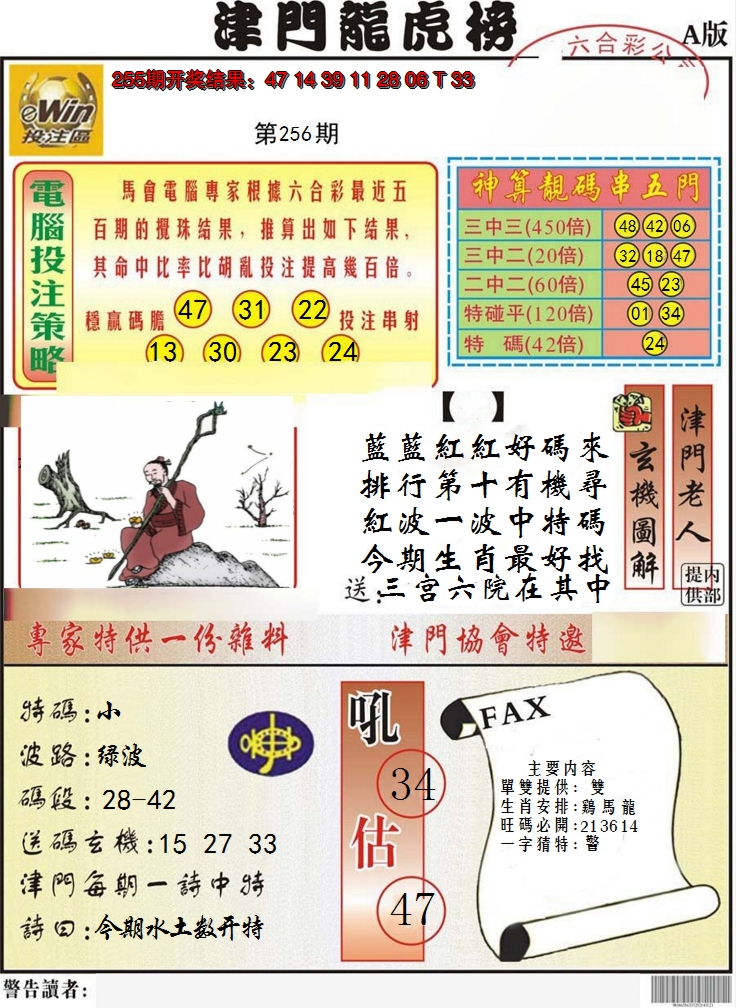 津門龍虎榜
六合彩公
A版
eWin
投注區
255期开奖结果：47 14 39 11 28 06 T 33
第256期
電腦投注策略
馬會電腦專家根據六合彩最近五
百期的攪珠结果，推算出如下结果，
其命中比率比胡亂投注提高幾百倍。
穩赢碼膽 47 31 22 投注串射
13 30 23 24
神算靚碼串五門
三中三(450倍) 48 42 06
三中二(20倍) 32 18 47
二中二(60倍) 45 23
特碰平(120倍) 01 34
特 碼(42倍) 24
【 】
藍藍紅紅好碼來
排行第十有機尋
紅波一波中特碼
今期生肖最好找
送:三宫六院在其中
玄機圖解
津門老人
内部提供
專家特供一份雜料
津門協會特邀
特碼:小
波路:绿波
碼段:28-42
送碼玄機:15 27 33
津門每期一詩中特
詩曰:今期水土数开特
吼 34
估 47
FAX
主要内容
單雙提供：雙
生肖安排:鷄馬龍
旺碼必開:213614
一字猜特:警
警告讀者: